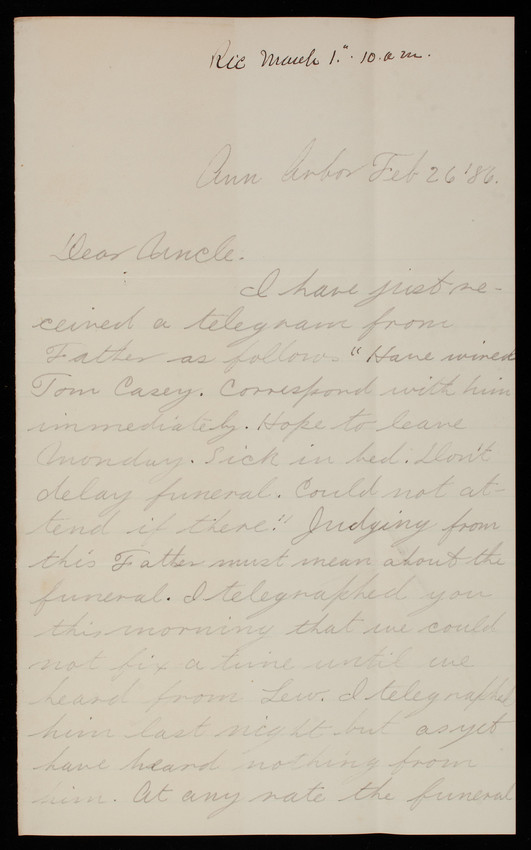 Rec March 1." 10. a m.
Ann Arbor Feb 26 '86.
Dear Uncle.
I have just re-
ceived a telegram from
Father as follows "Have wired
Tom Casey. Correspond with him
immediately. Hope to leave
Monday. Sick in bed. Don't
delay funeral. Could not at-
tend if there." Judging from
this Father must mean about the
funeral. I telegraphed you
this morning that we could
not fix a time until we
heard from Lew. I telegraphed
him last night but as yet
have heard nothing from
him. At any rate the funeral